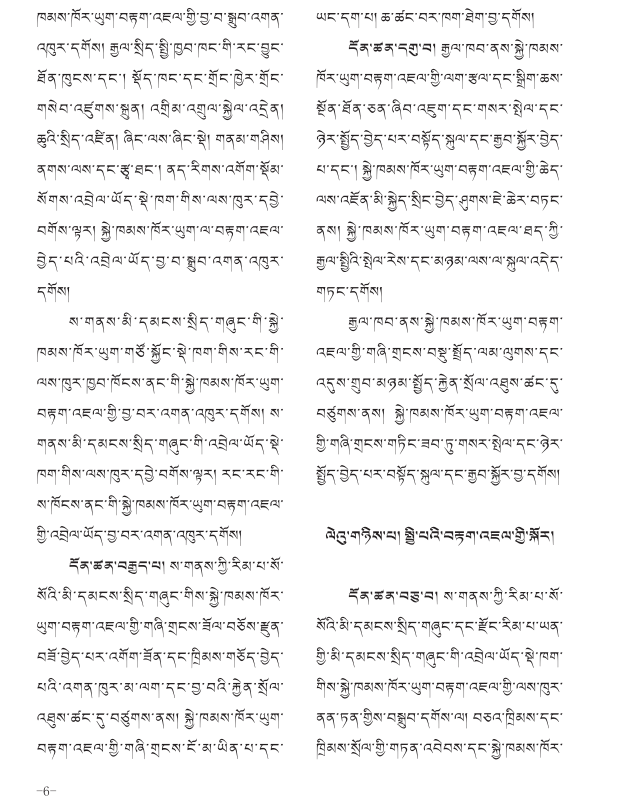 ཁམས་ཁོར་ཡུག་བརྟག་འཇལ་གྱི་བྱ་བ་སྒྲུབ་འགན་
འཁུར་དགོས། རྒྱལ་སྲིད་སྤྱི་ཁྱབ་ཁང་གི་རང་བྱུང་
ཐོན་ཁུངས་དང་། སྡོད་ཁང་དང་གྲོང་ཁྱེར་གྲོང་
གསེབ་འཛུགས་སྐྲུན། འགྲིམ་འགྲུལ་སྐྱེལ་འདྲེན།
ཆུའི་སྲིད་འཛིན། ཞིང་ལས་ཞིང་སྡེ། གནམ་གཤིས།
ནགས་ལས་དང་རྩྭ་ཐང་། ནད་རིགས་འགོག་སྡོམ་
སོགས་འབྲེལ་ཡོད་སྡེ་ཁག་གིས་ལས་ཁུར་དབྱེ་
བགོས་ལྟར། སྐྱེ་ཁམས་ཁོར་ཡུག་ལ་བརྟག་འཇལ་
བྱེད་པའི་འབྲེལ་ཡོད་བྱ་བ་སྒྲུབ་འགན་འཁུར་
དགོས།
ས་གནས་མི་དམངས་སྲིད་གཞུང་གི་སྐྱེ་
ཁམས་ཁོར་ཡུག་གཙོ་སྐྱོང་སྡེ་ཁག་གིས་རང་གི་
ལས་ཁུར་ཁྱབ་ཁོངས་ནང་གི་སྐྱེ་ཁམས་ཁོར་ཡུག་
བརྟག་འཇལ་གྱི་བྱ་བར་འགན་འཁུར་དགོས། ས་
གནས་མི་དམངས་སྲིད་གཞུང་གི་འབྲེལ་ཡོད་སྡེ་
ཁག་གིས་ལས་ཁུར་དབྱེ་བགོས་ལྟར། རང་རང་གི་
ས་ཁོངས་ནང་གི་སྐྱེ་ཁམས་ཁོར་ཡུག་བརྟག་འཇལ་
གྱི་འབྲེལ་ཡོད་བྱ་བར་འགན་འཁུར་དགོས།
དོན་ཚན་བརྒྱད་པ། ས་གནས་ཀྱི་རིམ་པ་སོ་
སོའི་མི་དམངས་སྲིད་གཞུང་གིས་སྐྱེ་ཁམས་ཁོར་
ཡུག་བརྟག་འཇལ་གྱི་གཞི་གྲངས་ཟོལ་བཅོས་རྫུན་
བཟོ་བྱེད་པར་འགོག་ཟོན་དང་ཁྲིམས་གཅོད་བྱེད་
པའི་འགན་ཁུར་མ་ལག་དང་བྱ་བའི་རྐྱེན་སྲོལ་
འཐུས་ཚང་དུ་བཙུགས་ནས། སྐྱེ་ཁམས་ཁོར་ཡུག་
བརྟག་འཇལ་གྱི་གཞི་གྲངས་ངོ་མ་ཡིན་པ་དང་
ཡང་དག་པ། ཆ་ཚང་བར་ཁག་ཐེག་བྱ་དགོས།
དོན་ཚན་དགུ་བ། རྒྱལ་ཁབ་ནས་སྐྱེ་ཁམས་
ཁོར་ཡུག་བརྟག་འཇལ་གྱི་ལག་རྩལ་དང་སྒྲིག་ཆས་
སྔོན་ཐོན་ཅན་ཞིབ་འཇུག་དང་གསར་སྤེལ་དང་
ཉེར་སྤྱོད་བྱེད་པར་བསྟོད་སྐུལ་དང་རྒྱབ་སྐྱོར་བྱེད་
པ་དང་། སྐྱེ་ཁམས་ཁོར་ཡུག་བརྟག་འཇལ་གྱི་ཆེད་
ལས་འཛོན་མི་སྐྱེད་སྲིང་བྱེད་ཤུགས་ཇེ་ཆེར་བཏང་
ནས། སྐྱེ་ཁམས་ཁོར་ཡུག་བརྟག་འཇལ་ཐད་ཀྱི་
རྒྱལ་སྤྱིའི་སྤེལ་རེས་དང་མཉམ་ལས་ལ་སྐུལ་འདེད་
གཏང་དགོས།
རྒྱལ་ཁབ་ནས་སྐྱེ་ཁམས་ཁོར་ཡུག་བརྟག་
འཇལ་གྱི་གཞི་གྲངས་བསྡུ་སྤྲོད་ལམ་ལུགས་དང་
འདུས་གྲུབ་མཉམ་སྤྱོད་རྐྱེན་སྲོལ་འཐུས་ཚང་དུ་
བཙུགས་ནས། སྐྱེ་ཁམས་ཁོར་ཡུག་བརྟག་འཇལ་
གྱི་གཞི་གྲངས་གཏིང་ཟབ་ཏུ་གསར་སྤེལ་དང་ཉེར་
སྤྱོད་བྱེད་པར་བསྟོད་སྐུལ་དང་རྒྱབ་སྐྱོར་བྱ་དགོས།
ལེའུ་གཉིས་པ། སྤྱི་པའི་བརྟག་འཇལ་གྱི་སྐོར།
དོན་ཚན་བཅུ་བ། ས་གནས་ཀྱི་རིམ་པ་སོ་
སོའི་མི་དམངས་སྲིད་གཞུང་དང་རྫོང་རིམ་པ་ཡན་
གྱི་མི་དམངས་སྲིད་གཞུང་གི་འབྲེལ་ཡོད་སྡེ་ཁག་
གིས་སྐྱེ་ཁམས་ཁོར་ཡུག་བརྟག་འཇལ་གྱི་ལས་ཁུར་
ནན་ཏན་གྱིས་བསྒྲུབ་དགོས་ལ། བཅའ་ཁྲིམས་དང་
ཁྲིམས་སྲོལ་གྱི་གཏན་འབེབས་དང་སྐྱེ་ཁམས་ཁོར་
-6-